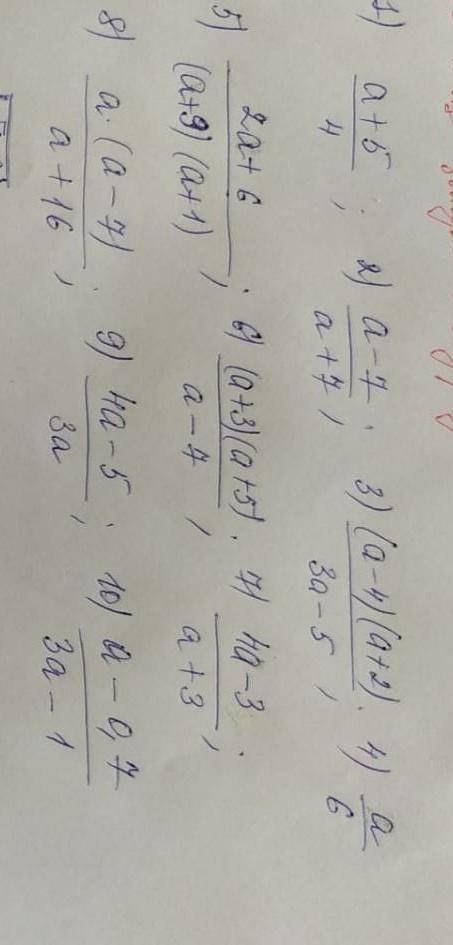 1) (a+5)/4; 2) (a-7)/(a+7); 3) ((a-4)(a+2))/(3a-5); 4) a/6
5) (2a+6)/((a+9)(a+1)); 6) ((a+3)(a+5))/(a-7); 7) (4a-3)/(a+3);
8) (a·(a-7))/(a+16); 9) (4a-5)/(3a); 10) (a-0,7)/(3a-1)